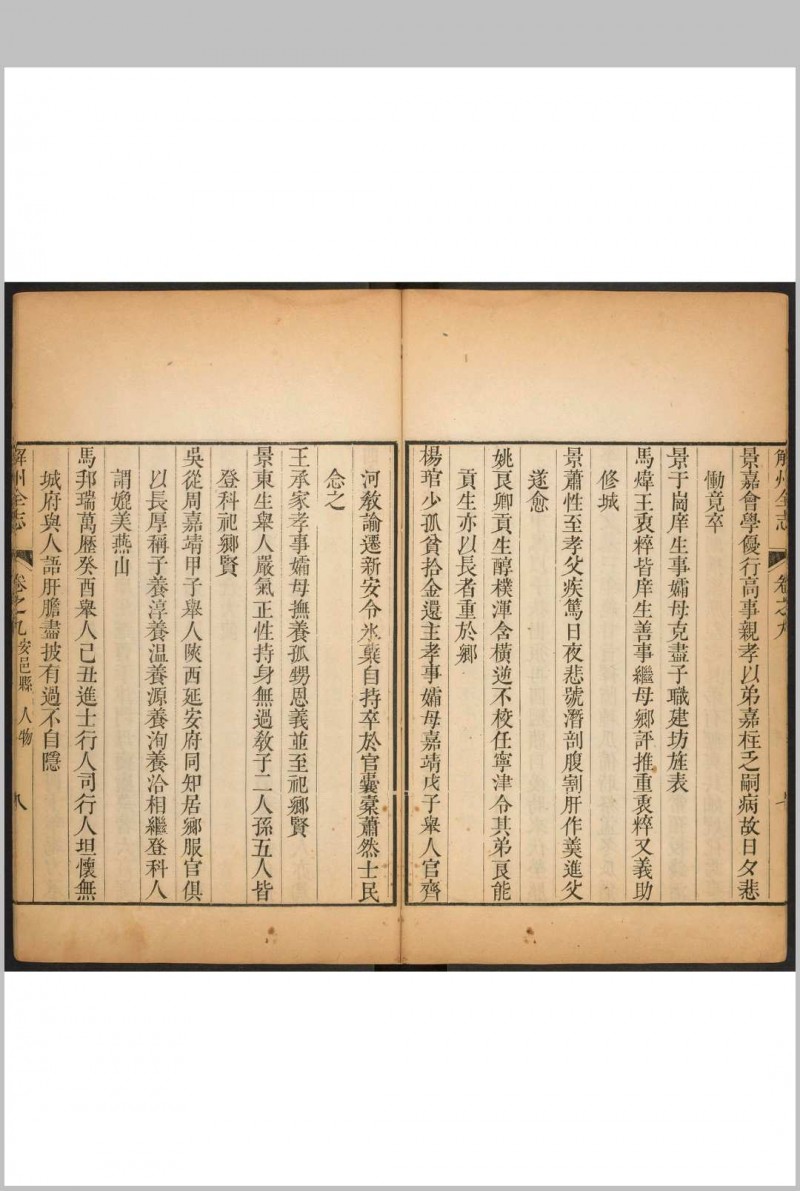 解州全志 卷之九
景嘉會學優行高事親孝以弟嘉柱乏嗣病故日夕悲
慟竟卒
景于崗庠生事孀母克盡子職建坊旌表
馬煒王衷粹皆庠生善事繼母鄉評推重衷粹又義助
修城
景蕭性至孝父疾篤日夜悲號潛剖腹割肝作羹進父
遂愈
姚良卿貢生醇樸渾含橫逆不校任寧津令其弟良能
貢生亦以長者重於鄉
楊琯少孤貧拾金還主孝事孀母嘉靖戊子舉人官齊
河敎諭遷新安令氷蘗自持卒於官囊槖蕭然士民
念之
王承家孝事孀母撫養孤甥恩義並至祀鄉賢
景東生舉人嚴氣正性持身無過敎子二人孫五人皆
登科祀鄉賢
吳從周嘉靖甲子舉人陝西延安府同知居鄉服官俱
以長厚稱子養淳養温養源養洵養洽相繼登科人
謂媲美燕山
馬邦瑞萬歷癸酉舉人己丑進士行人司行人坦懷無
城府與人語肝膽盡披有過不自隱
解州全志 卷之九 安邑縣 人物 八